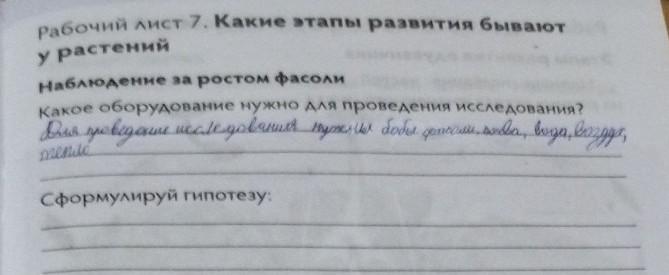 Рабочий лист 7. Какие этапы развития бывают
у растений
Наблюдение за ростом фасоли
Какое оборудование нужно для проведения исследования?
Для проведения исследования нужны бобы фасоли, вода, воздух,
тепло
Сформулируй гипотезу: